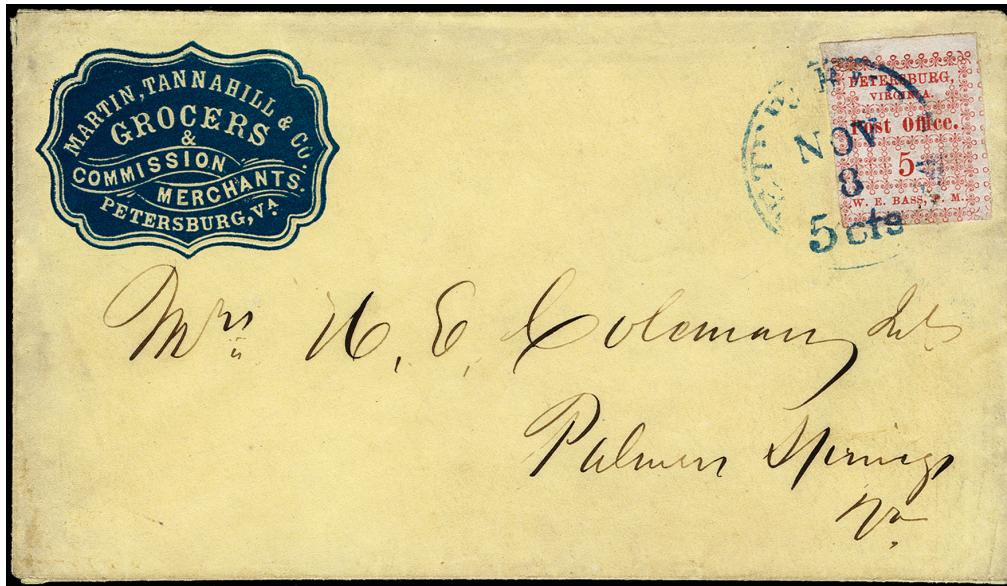 MARTIN, TANNAHILL & CO.
GROCERS
&
COMMISSION
MERCHANTS.
PETERSBURG, VA
PETERSBURG,
VIRGINIA.
Post Office.
5
W. E. BASS, P. M.
NOV
8
5 cts
Mrs E. Coleman
Palmer Springs
Va